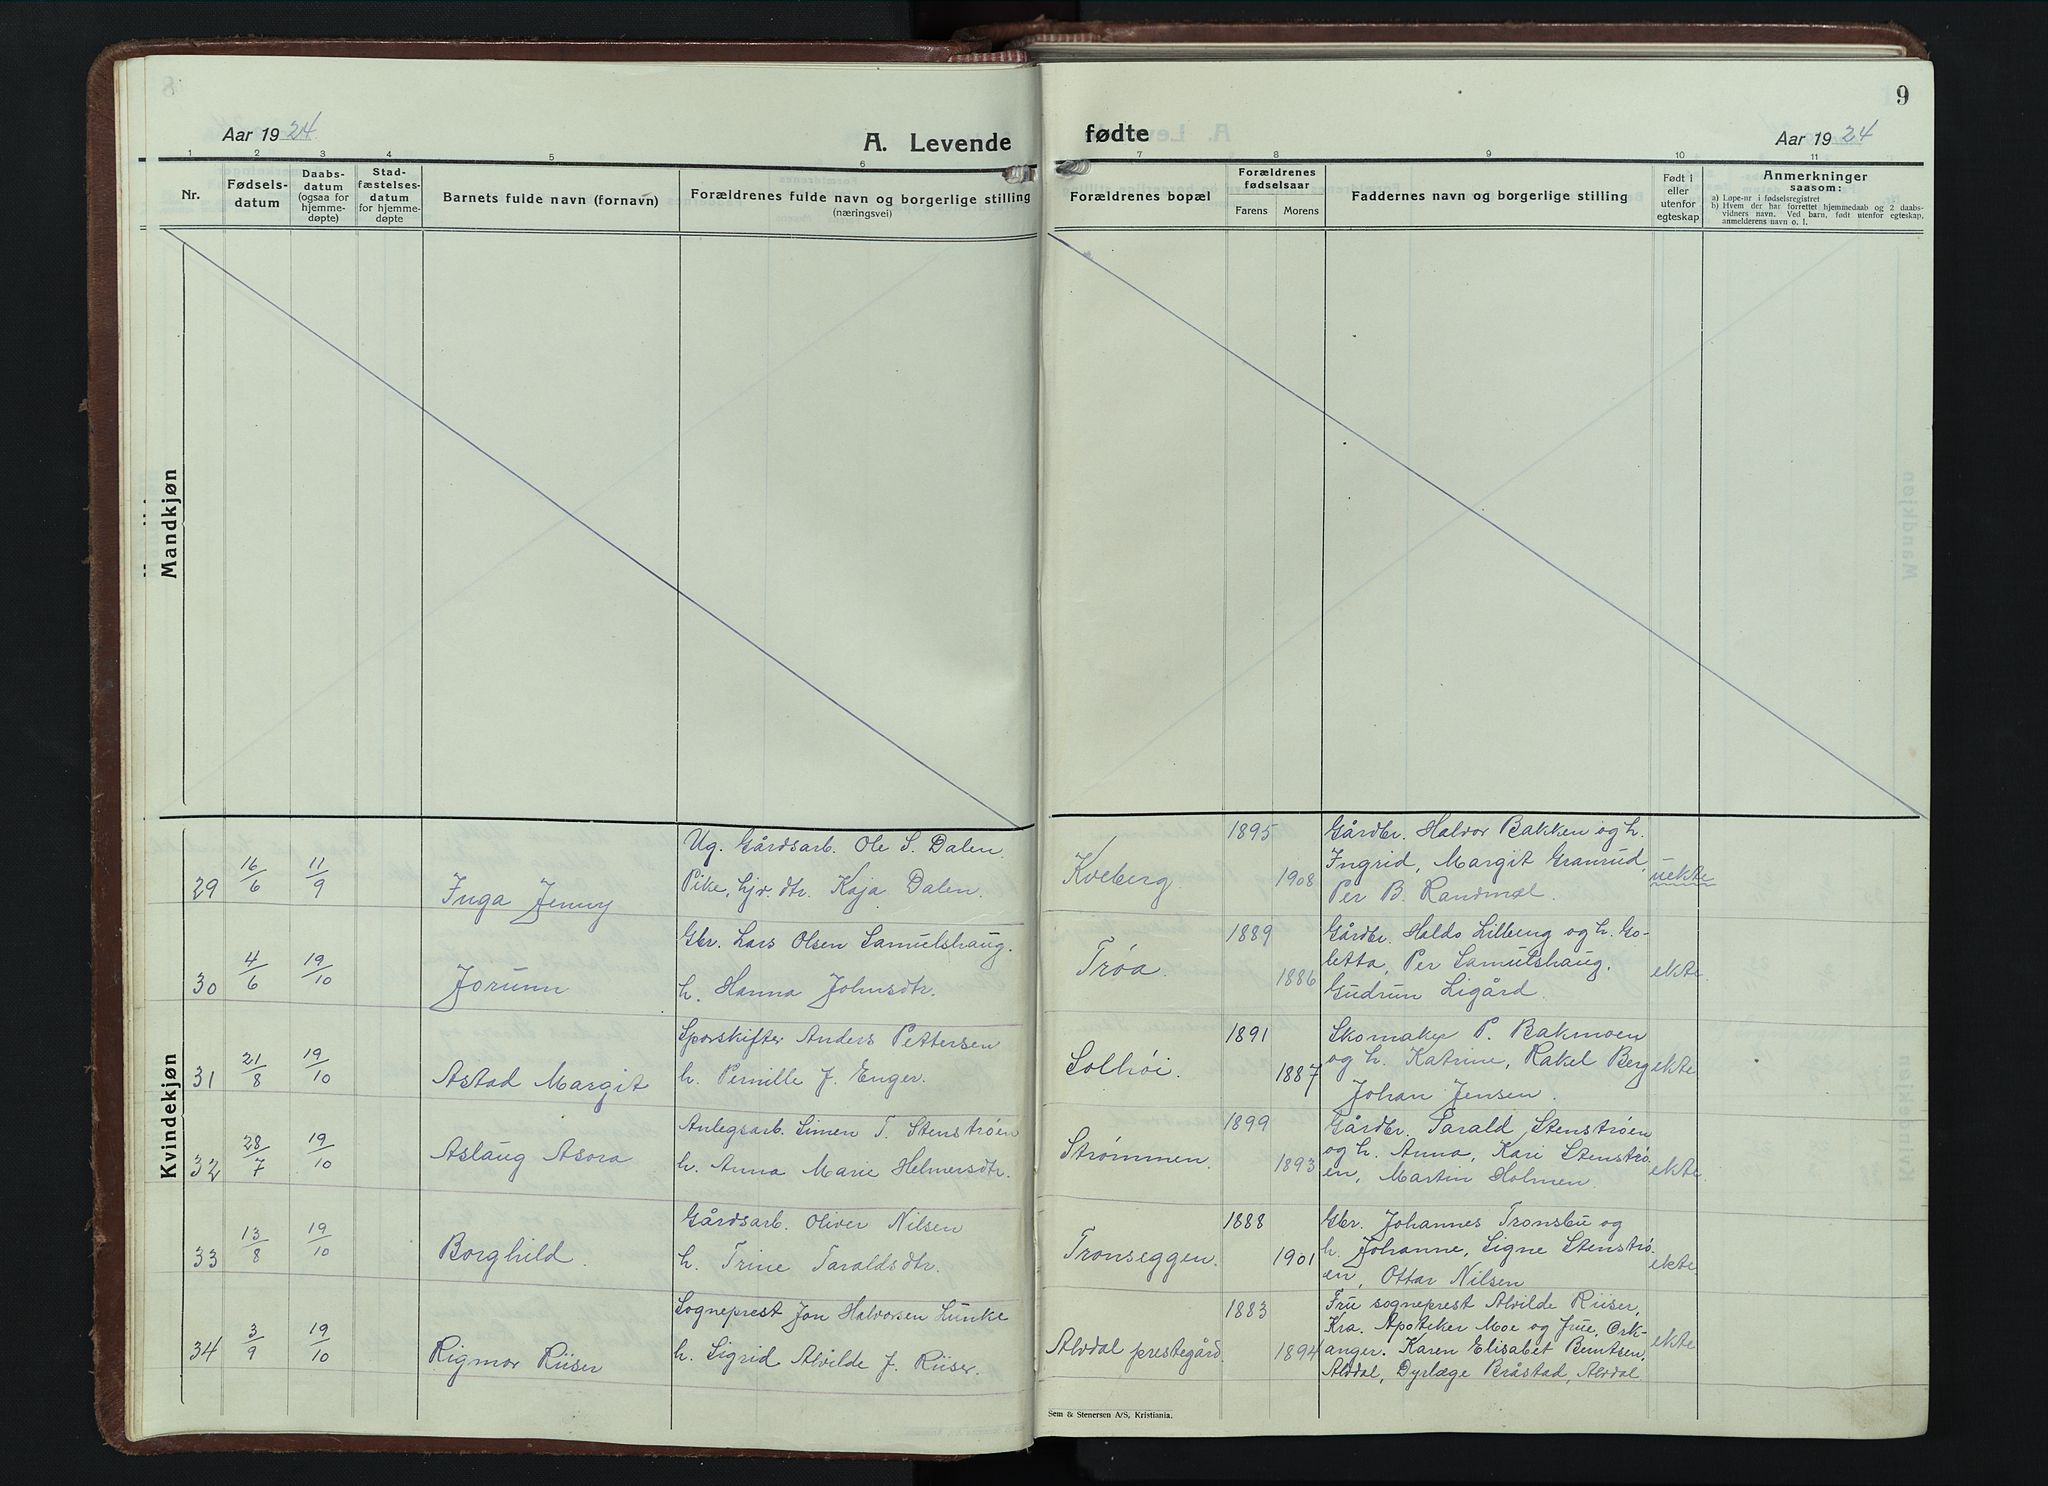 9
Aar 1924
A. Levende fødte
Aar 1924
1 2 3 4 5 6 7 8 9 10 11
Nr.
Fødsels-
datum
Daabs-
datum
(ogsaa for
hjemme-
døpte)
Stad-
fæstelses-
datum
for hjemme-
døpte
Barnets fulde navn (fornavn)
Forældrenes fulde navn og borgerlige stilling
(næringsvei)
Forældrenes bopæl
Forældrenes
fødselsaar
Farens Morens
Faddernes navn og borgerlige stilling
Født i
eller
utenfor
egteskap
Anmerkninger
saasom:
a) Løpe-nr i fødselsregistret
b) Hvem der har forrettet hjemmedaab og 2 daabs-
vidners navn. Ved barn, født utenfor egteskap,
anmelderens navn o. l.
Mandkjøn
Kvindekjøn
29 16/6 11/9 Inga Jenny
Ug. Gårdsarb. Ole S. Dalen.
Pike, hjv. dtr. Kaja Dalen.
Kveberg. 1895 1908
Gårdbr. Halvor Bakken og h.
Ingrid, Margit Granrud,
Per B. Randmæl.
uekte
30 4/6 19/10 Jorunn
Gbr. Lars Olsen Samulshaug.
h. Hanna Johnsdtr.
Trøa. 1889 1886
Gårdbr. Haldo Lilleeng og h. Go-
letta, Per Samulshaug.
Gudrun Ligård.
ekte.
31 21/8 19/10 Astad Margit
Sporskifter Anders Pettersen
h. Pernille J. Enger.
Solhøi. 1891 1887
Skomaker P. Bakmoen
og h. Katrine, Rakel Berg
Johan Jensen.
ekte
32 28/7 19/10 Aslaug Asora
Anlegsarb. Simen T. Stenstrøen
h. Anna Marie Helmersdtr.
Strømmen. 1899 1893
Gårdbr. Tarald Stenstrøen
og h. Anna, Kari Stenstrø-
en, Martin Holmen.
ekte.
33 13/8 19/10 Borghild.
Gårdsarb. Oliver Nilsen
h. Trine Taraldsdtr.
Tronseggen. 1888 1901
Gbr. Johannes Tronsbu og
h. Johanne, Signe Stenstrø-
en, Ottar Nilsen
ekte.
34 3/9 19/10 Rigmor Riiser
Sogneprest Jon Halvorsen Hunke
h. Sigrid Alvilde J. Riiser.
Alvdal prestegård. 1883 1894
Fru sogneprest Alvilde Riiser,
Kra. Apoteker Moe og frue, Ork-
anger. Karen Elisabet Berntsen,
Alvdal, Dyrlæge Bråstad, Alvdal.
ekte
Sem & Stenersen A/S, Kristiania.